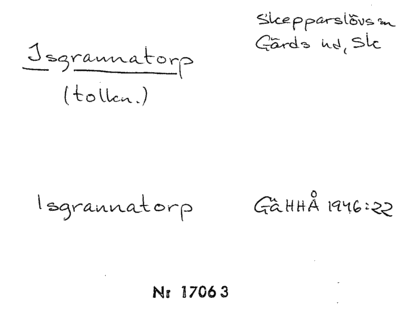 Skepparslövs sn
Gärds hd, Sk
Isgrannatorp
(tolkn.)
Isgrannatorp GäHHÅ 1946:22
Nr 17063